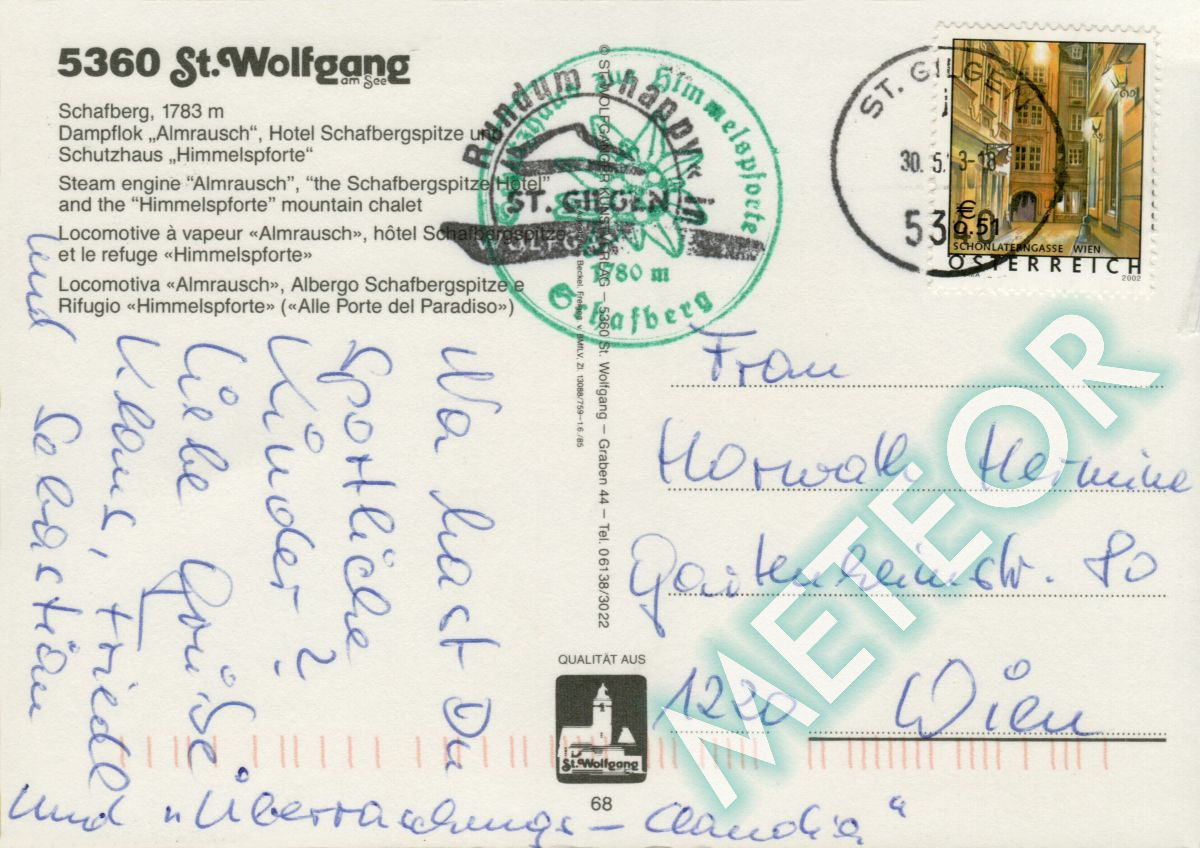 5360 St. Wolfgang
am See
Schafberg, 1783 m
Dampflok „Almrausch“, Hotel Schafbergspitze und
Schutzhaus „Himmelspforte“
Steam engine “Almrausch”, “the Schafbergspitze Hotel”
and the “Himmelspforte” mountain chalet
Locomotive à vapeur «Almrausch», hôtel Schafbergspitze
et le refuge «Himmelspforte»
Locomotiva «Almrausch», Albergo Schafbergspitze e
Rifugio «Himmelspforte» («Alle Porte del Paradiso»)
Na hast Du
sportliche
Kinder?
Liebe Grüße
Klaus, Friedl
und Sebastian
und „Überraschungs-Claudia“
Rundum »happy« in
ST. GILGEN
zur Himmelspforte
1780 m
Schafberg
WOLFGANGER KUNSTVERLAG – 5360 St. Wolfgang – Graben 44 – Tel. 06138/3022
v. BMfLV, Zl. 13088/759–1.6/85
QUALITÄT AUS
St. Wolfgang
68
ST. GILGEN
5340
€
0.51
SCHÖNLATERNGASSE WIEN
ÖSTERREICH
2002
Frau
Horwath Hermine
Gartenheimstr. 80
1220 Wien
METEOR